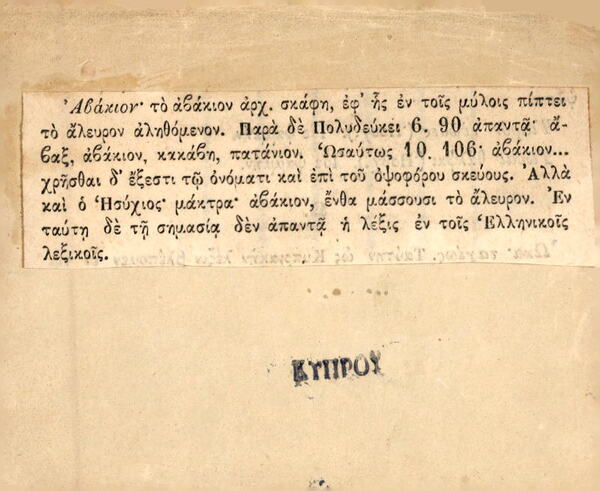 Ἀβάκιον· τὸ ἀβάκιον ἀρχ. σκάφη, ἐφ' ἧς ἐν τοῖς μύλοις πίπτει
τὸ ἄλευρον ἀληθόμενον. Παρὰ δὲ Πολυδεύκει 6. 90 ἀπαντᾷ· ἄ-
βαξ, ἀβάκιον, κακάβη, πατάνιον. Ὡσαύτως 10. 106· ἀβάκιον...
χρῆσθαι δ' ἔξεστι τῷ ὀνόματι καὶ ἐπὶ τοῦ ὀψοφόρου σκεύους. Ἀλλὰ
καὶ ὁ Ἡσύχιος· μάκτρα· ἀβάκιον, ἔνθα μάσσουσι τὸ ἄλευρον. Ἐν
ταύτῃ δὲ τῇ σημασίᾳ δὲν ἀπαντᾷ ἡ λέξις ἐν τοῖς Ἑλληνικοῖς
λεξικοῖς.
ΚΥΠΡΟΥ